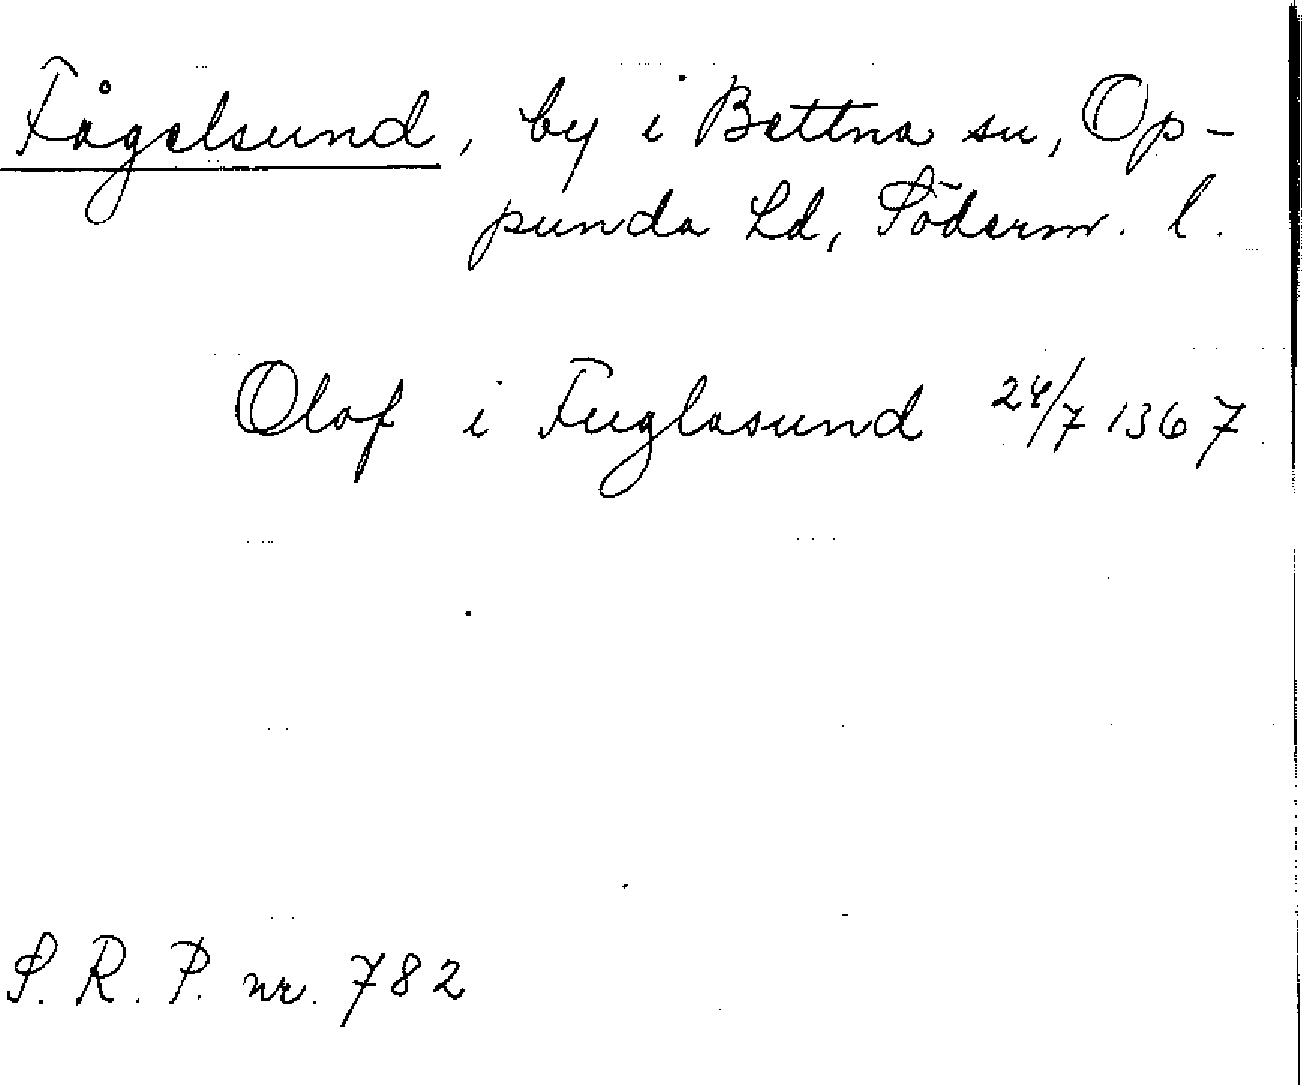 Fågelsund, by i Bettna sn, Op-
punda hd, Söderm. l.
Olof i Fuglasund 24/7 1367
S. R. P. nr. 782